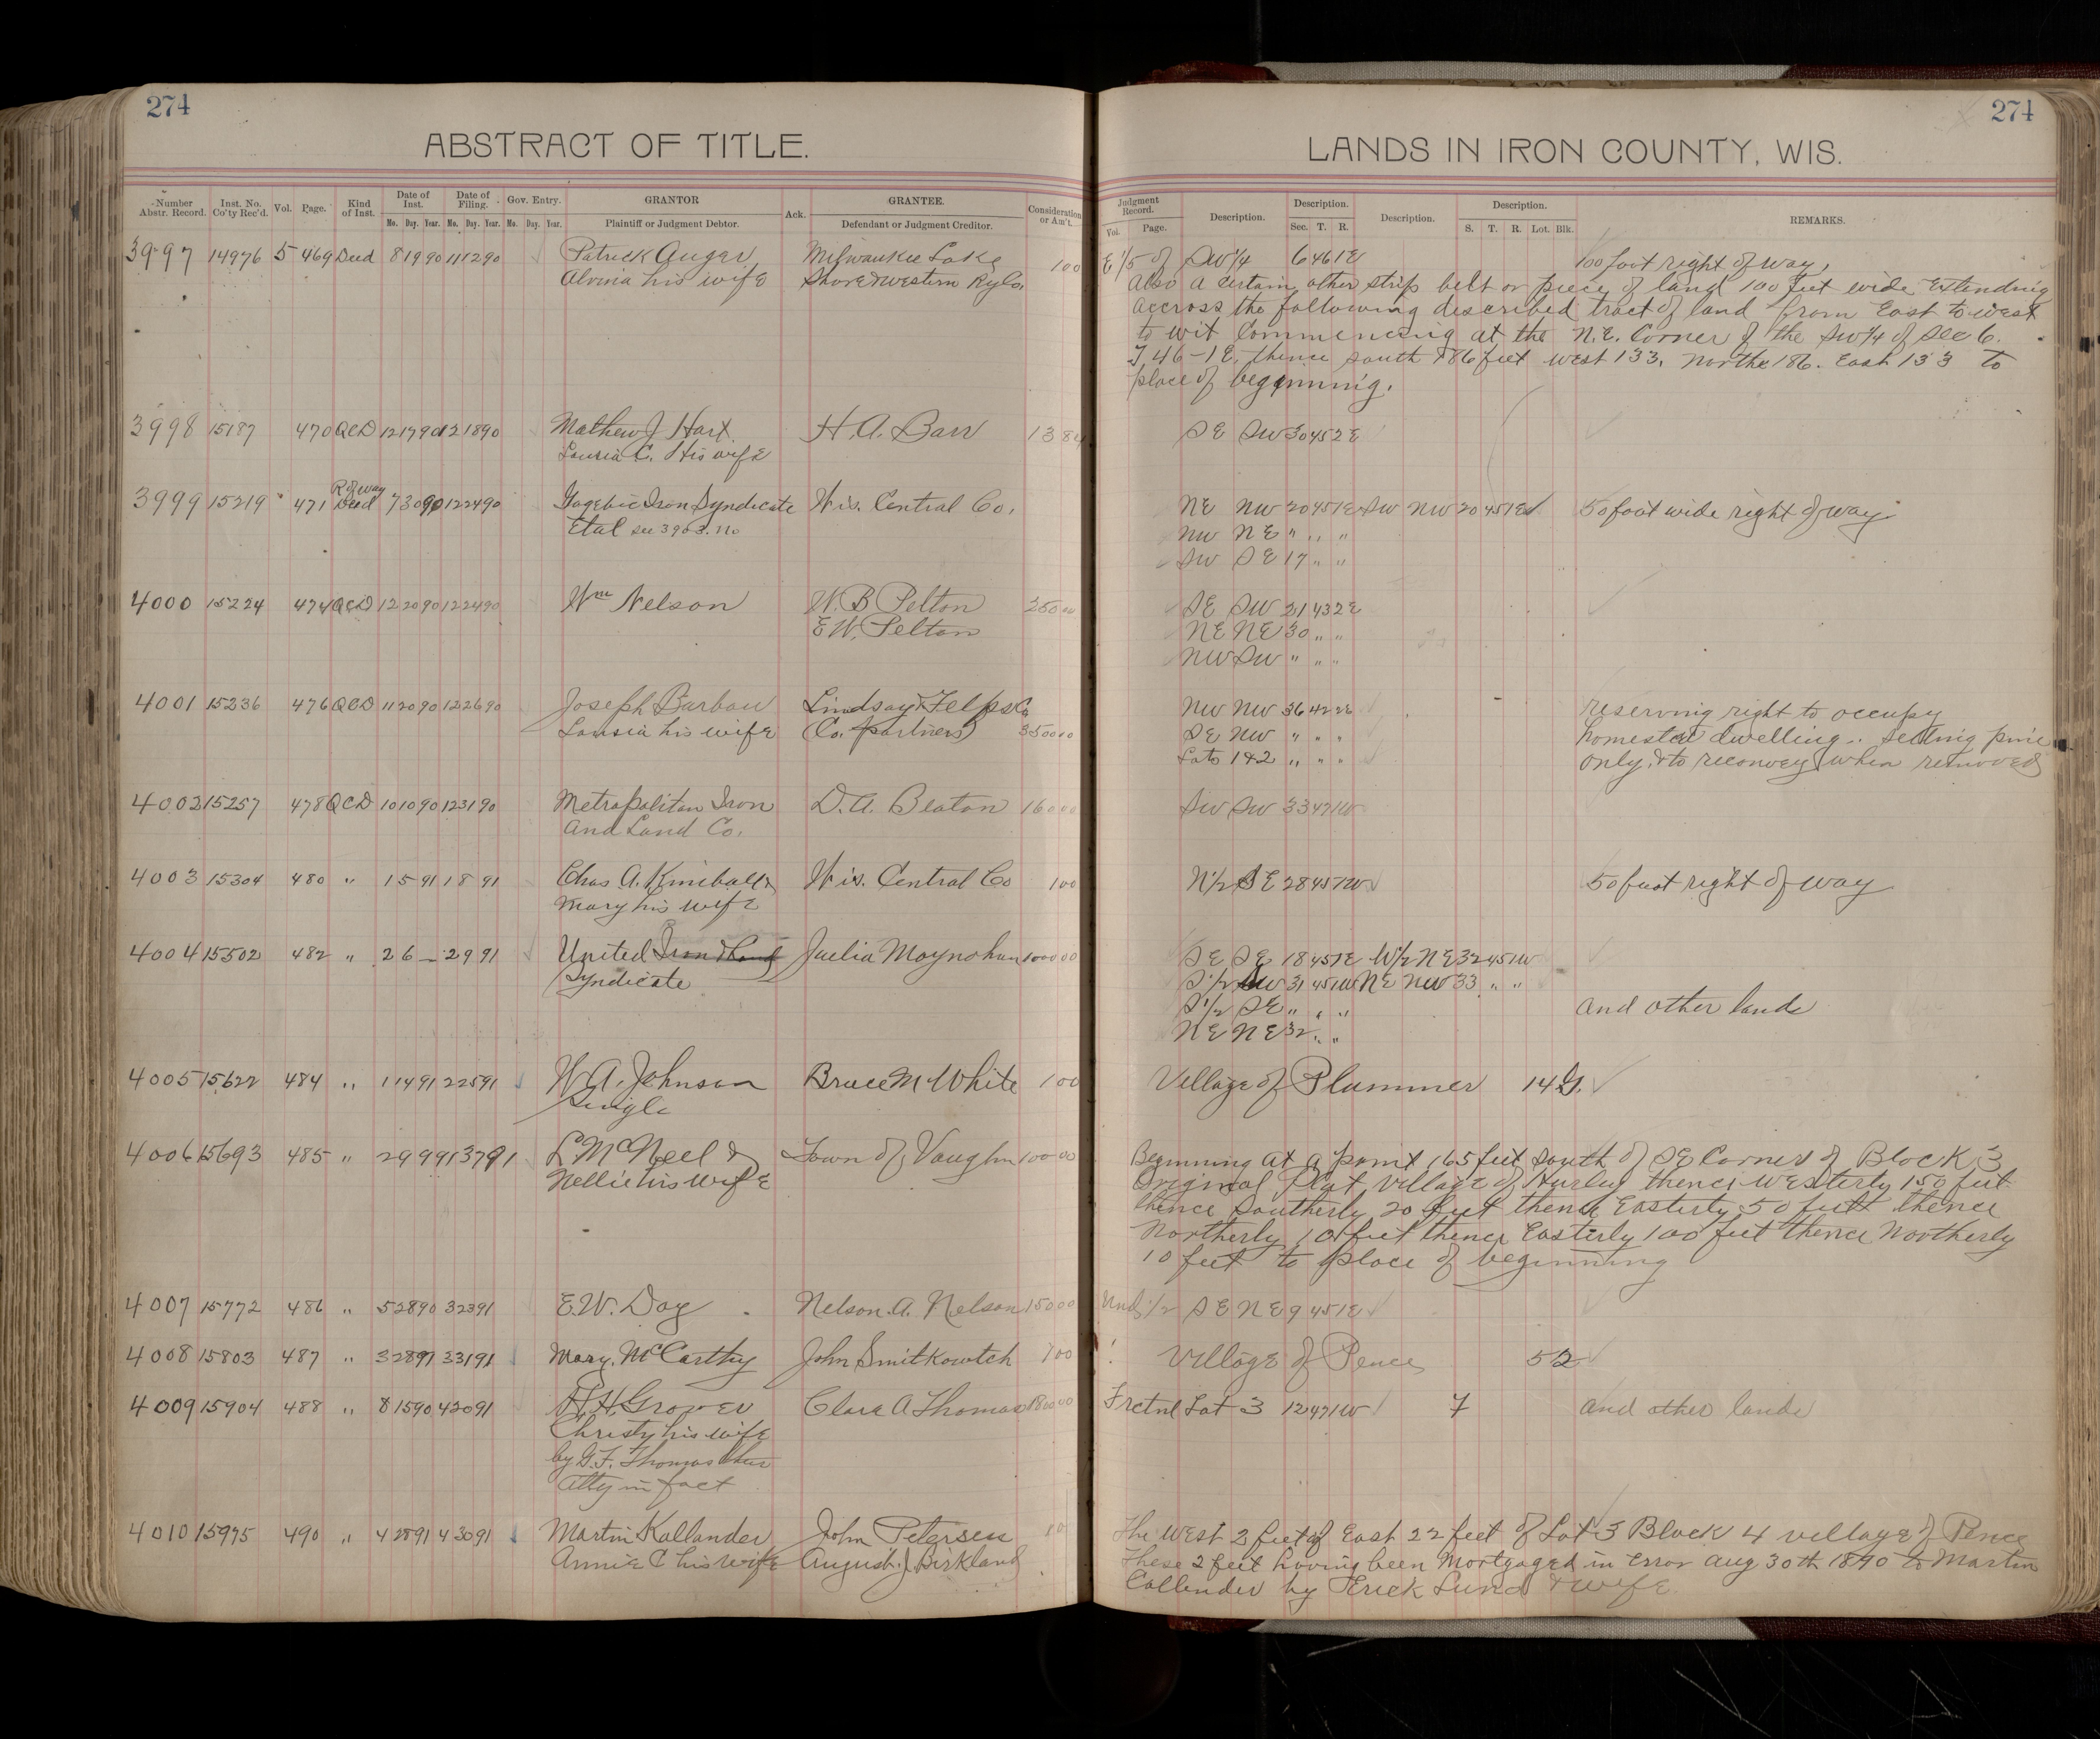 274
ABSTRACT OF TITLE.
Number Abstr. Record. Inst. No. Co'ty Rec'd. Vol. Page. Kind of Inst. Date of Inst. Mo. Day. Year. Date of Filing. Mo. Day. Year. Gov. Entry. Mo. Day. Year. GRANTOR Plaintiff or Judgment Debtor. Ack. GRANTEE. Defendant or Judgment Creditor. Consideration or Am't.
3997 14976 5 469 Deed 8 19 90 11 12 90 Patrick Auger Milwaukee Lake 100
Alvina his wife Shore & Western Ry Co.
3998 15187 470 QCD 12 17 90 12 18 90 Mathew J Hart H. A. Barr 13 84
Lousia C. His wife
3999 15219 471 R of way Deed 7 30 90 12 24 90 Gogebic Iron Syndicate Wis. Central Co.
Etal see 3903. no
4000 15224 474 QCD 12 20 90 12 24 90 Wm Nelson W. B Pelton 250 00
E W. Pelton
4001 15236 476 QCD 11 20 90 12 26 90 Joseph Barbau Lindsay & Felps Co
Lousia his wife (Co. partners) 350 00
4002 15257 478 QCD 10 10 90 12 31 90 Metropolitan Iron D. A. Beaton 160 00
and Land Co.
4003 15304 480 " 1 5 91 1 8 91 Chas A. Kimball & Wis. Central Co 100
Mary his wife
4004 15502 482 " 2 6 — 2 9 91 United Iron & Land Juelia Moynohan 1000 00
Syndicate
4005 15622 484 " 1 14 91 2 25 91 W A. Johnson Bruce M White 100
Single
4006 15693 485 " 2 9 91 3 7 91 L McNeel & Town of Vaughn 100 00
Nellie his wife
4007 15772 486 " 5 28 90 3 23 91 E. W. Day Nelson. A. Nelson 150 00
4008 15803 487 " 3 28 91 3 31 91 Mary. McCarthy John Smitkowtch 100
4009 15904 488 " 8 15 90 4 20 91 H. H. Grover Clara A Thomas
Christy his wife
by G. F. Thomas their
Atty in fact
4010 15975 490 " 4 28 91 4 30 91 Martin Kallander John Petersen
Annie C his wife August. J. Birkland
274
LANDS IN IRON COUNTY, WIS.
Judgment Record. Vol. Page. Description. Description. Sec. T. R. Description. Description. S. T. R. Lot. Blk. REMARKS.
E 1/5 of SW 1/4 6 46 1E 100 foot right of way,
Also a certain other strip belt or piece of land 100 feet wide Extending
accross the following described tract of land from East to west
to wit Commencing at the N. E. Corner of the SW 1/4 of Sec 6.
T. 46 - 1 E. thence south 186 feet west 133. North 186. East 133 to
place of beginning.
SE SW 30 45 2E
NE NW 20 45 1E SW NW 20 45 1E 50 foot wide right of way
NW NE " " "
SW SE 17 " "
SE SW 21 43 2E
NE NE 30 " "
NW SW " " "
NW NW 36 42 2E reserving right to occupy
SE NW " " " homestead dwelling .. selling pine
Lots 1 & 2 " " " only. & to reconvey when removed
SW SW 33 47 1W
N 1/2 SE 28 45 1W 50 foot right of way
SE SE 18 45 1E W 1/2 NE 32 45 1W
S 1/2 SW 31 45 1W NE NW 33 " "
S 1/2 SE " " " and other lands
NE NE 32 " "
Village of Plummer 14 G.
Beginning at a point 165 feet south of SE Corner of Block 3
Original Plat Village of Hurley thence westerly 150 feet
thence Southerly 20 feet thence Easterly 50 feet thence
Northerly 10 feet thence Easterly 100 feet thence Northerly
10 feet to place of beginning
Und 1/2 SE NE 9 45 1E
Village of Pence 5 2
Frctnl Lot 3 12 47 1W 7 and other lands
The West 2 feet of East 22 feet of Lot 3 Block 4 village of Pence
These 2 feet having been Mortgaged in Error Aug 30th 1890 to Martin
Callender by Erick Lund & wife.